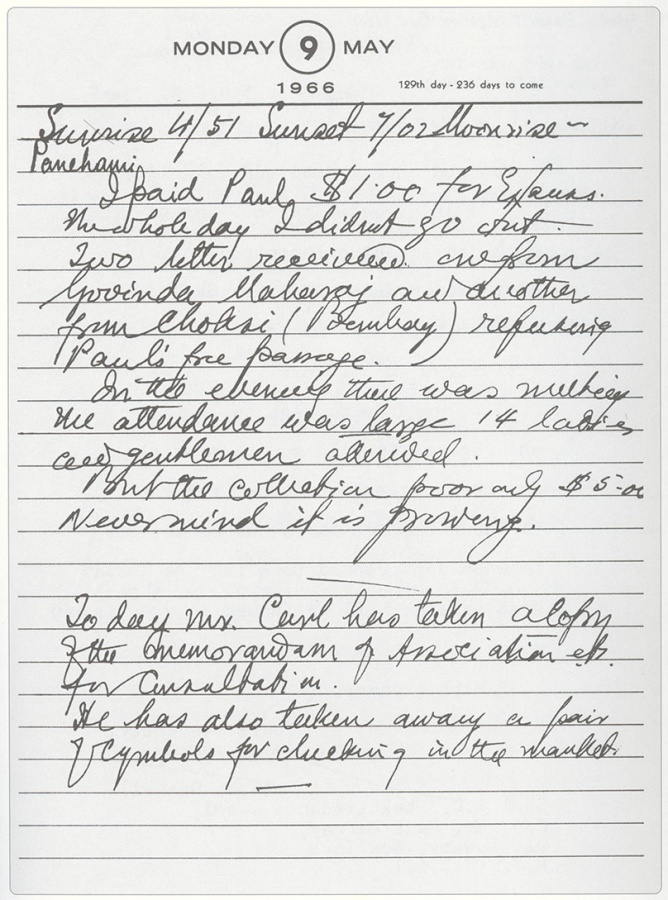 MONDAY 9 MAY
1966
129th day - 236 days to come
Sunrise 4/51 Sunset 7/02 Moonrise —
Panchami
I paid Paul $1.00 for
The whole day I didnt go out —
Two letter received. one from
Govinda Maharaj and another
from Choksi (Bombay) refusing
Paul's free passage.
In the evening there was meeting
the attendance was large 14 ladies
and gentlemen attended.
But the collection poor only $5-00
Nevermind it is growing.
To day Mr. Carl has taken a copy
of the memorandam of Association etc.
for consultation.
He has also taken away a pair
of Cymbols for checking in the market